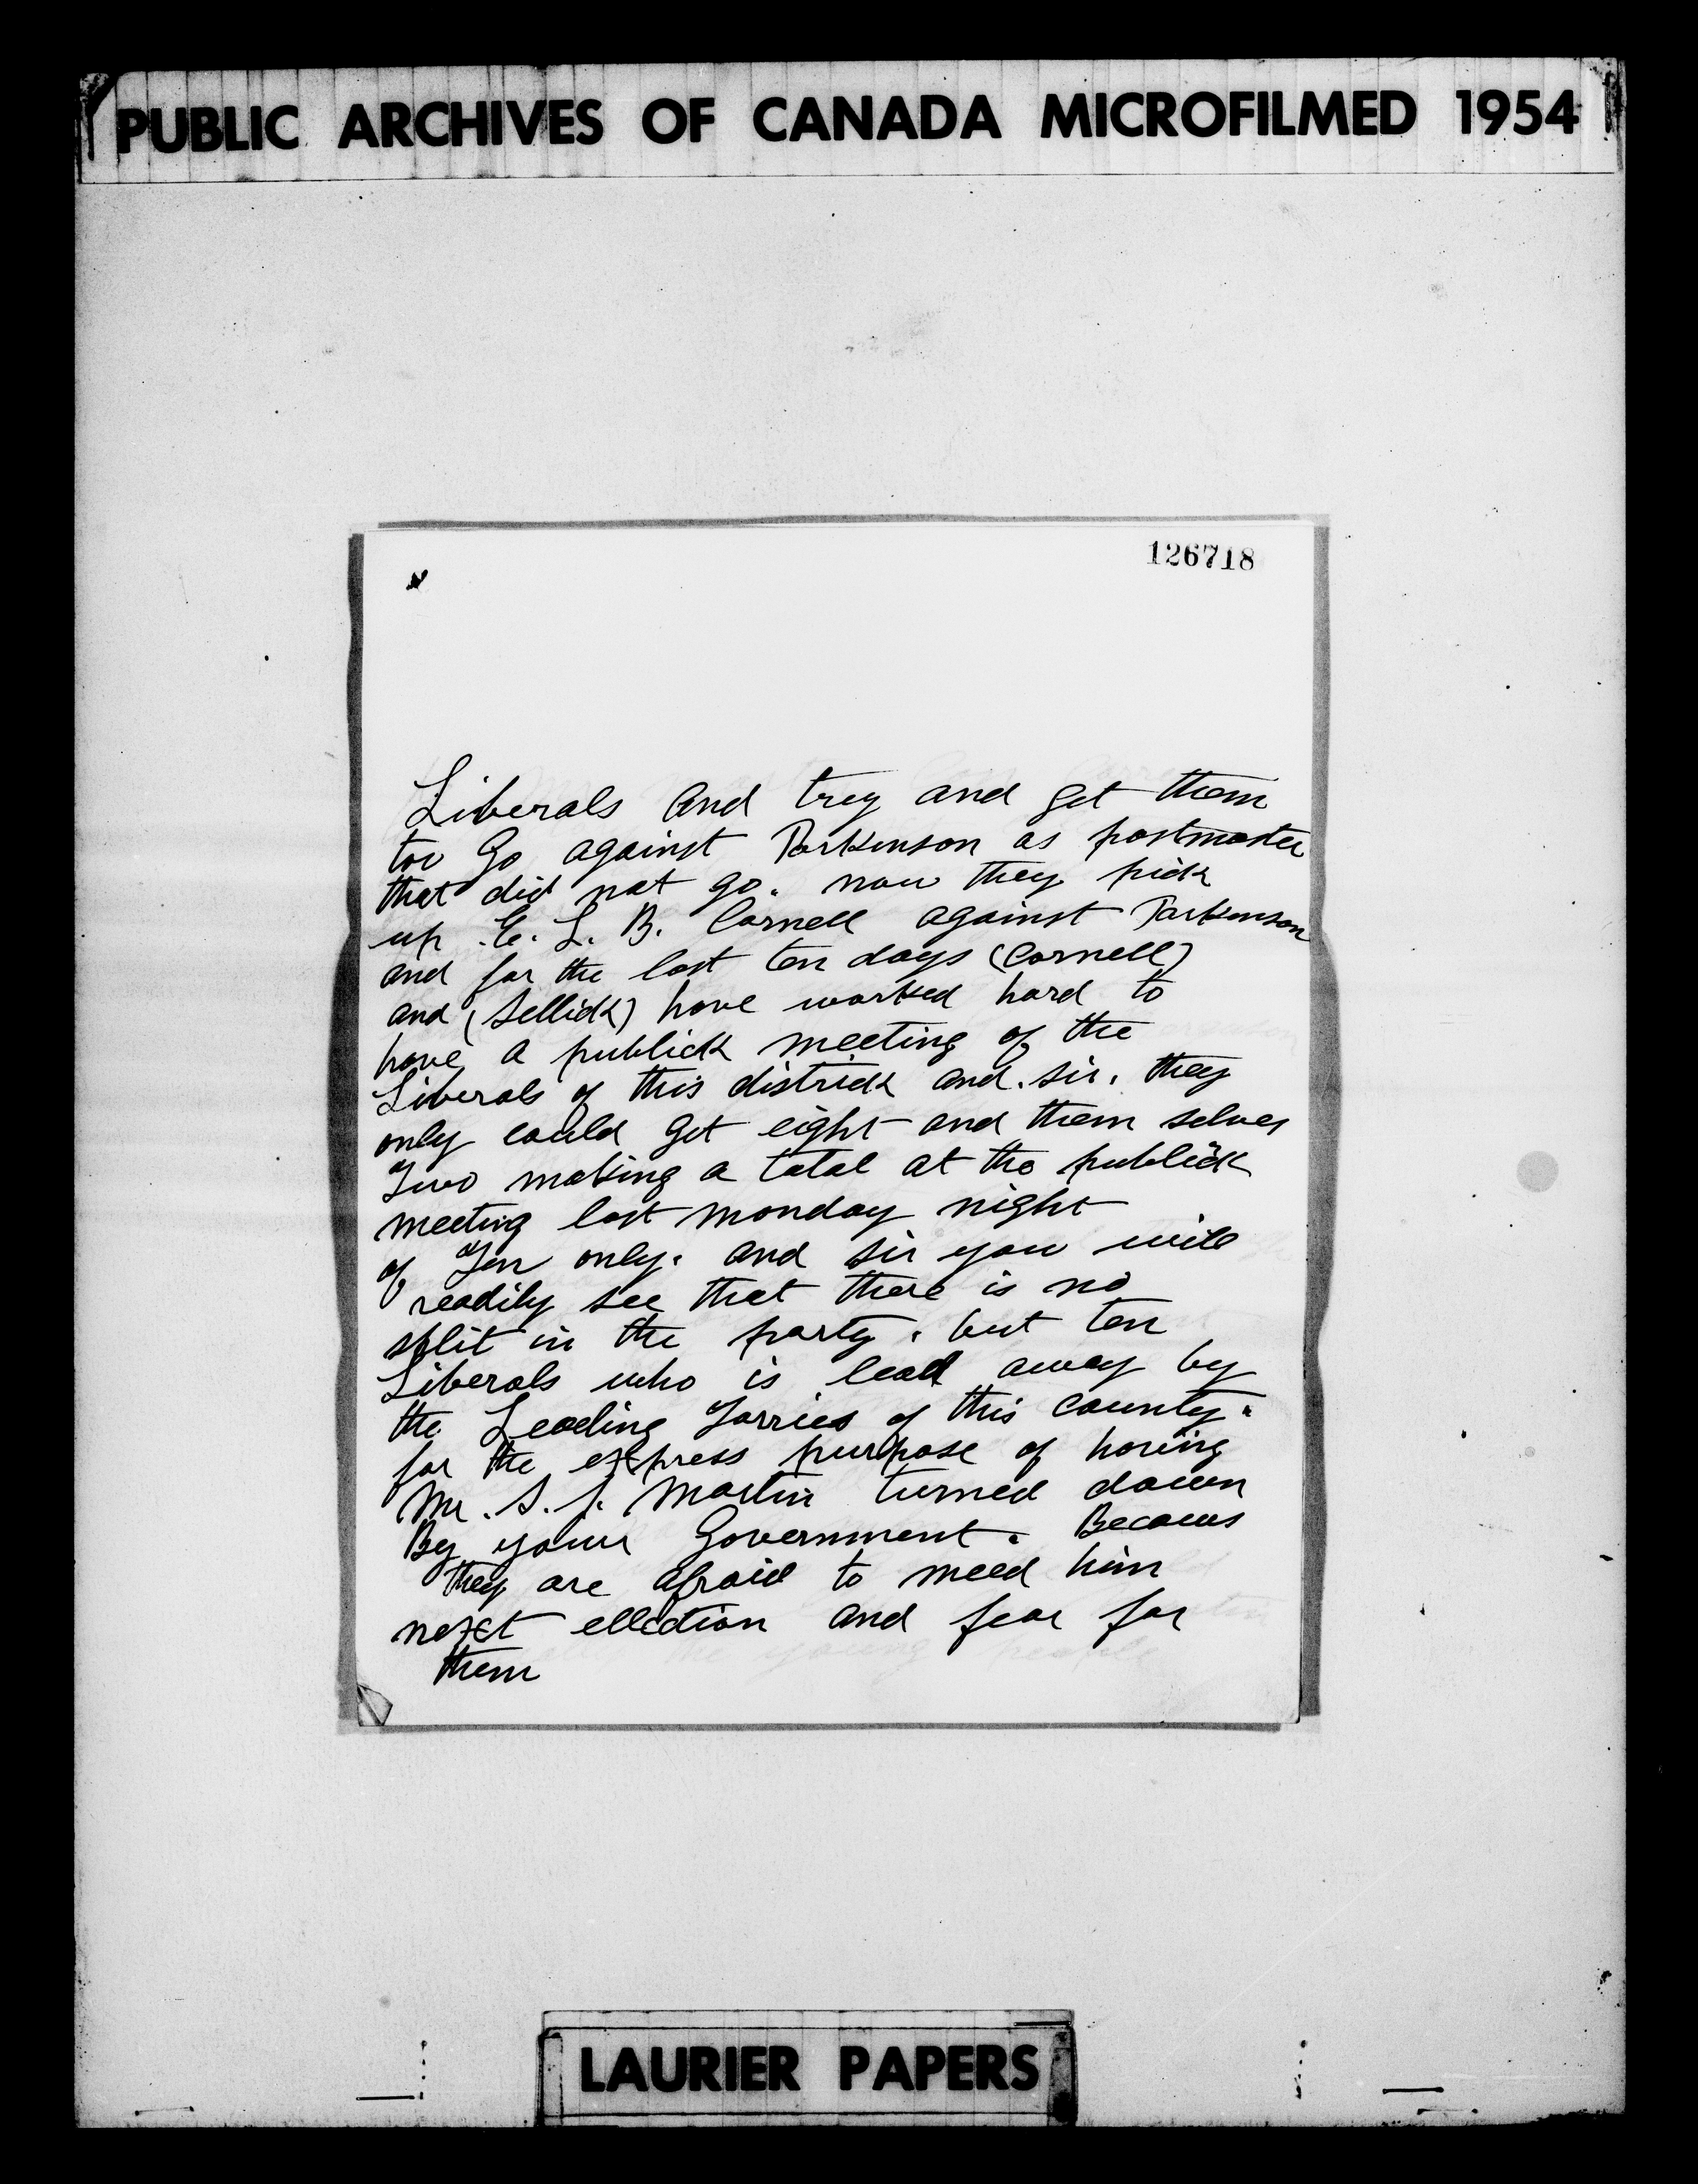 PUBLIC ARCHIVES OF CANADA MICROFILMED 1954
126718
Liberals and trey and get them
too Go against Parkinson as postmaster
that did not go. now they pick
up . E. L. B. Cornell against Parkinson
and for the last ten days (Cornell)
and (Sellick) have worked hard to
have a publick meeting of the
Liberals of this districk and . sir . they
only could get eight and them selves
Two making a total at the publick
meeting last monday night
of Ten only. and sir you will
readily see that there is no
split in the party . but ten
Liberals who is lead away by
the Leading Torries of this county .
for the express purpose of having
Mr . S. J. Martin turned down
By your Government . Becaus
they are afraid to meed him
next ellection and fear for
them
LAURIER PAPERS